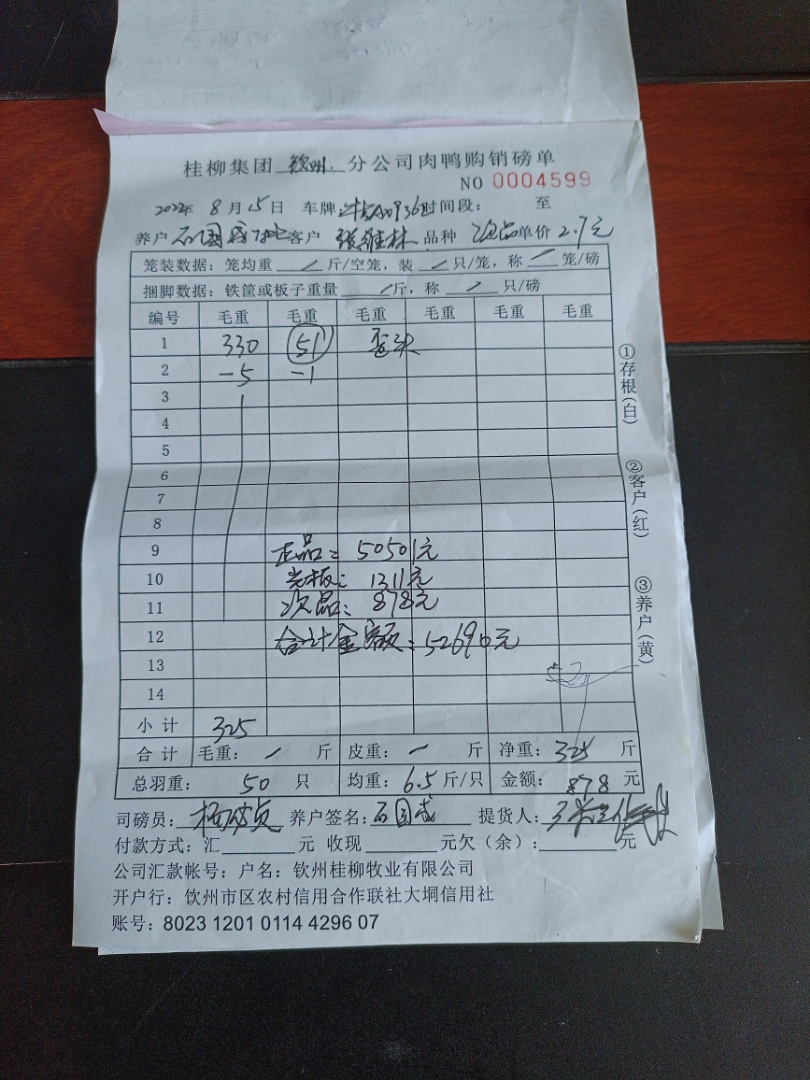 桂柳集团 钦州 分公司肉鸭购销磅单
NO 0004599
2022年 8月15日 车牌: 时间段: 至
养户 石国 客户 张维林 品种 次品 单价 2.7元
笼装数据:笼均重 / 斤/空笼,装 / 只/笼,称 / 笼/磅
捆脚数据:铁筐或板子重量 / 斤,称 / 只/磅
编号 毛重 毛重 毛重 毛重 毛重 毛重
1 330 51 歪头
2 -5 -1
3
4
5
6
7
8
9 正品: 50501元
10 光板: 1311元
11 次品: 878元
12 合计金额: 52690元
13
14
小计 325
合计 毛重: / 斤 皮重: / 斤 净重: 325 斤
总羽重: 50 只 均重: 6.5 斤/只 金额: 878 元
司磅员: 养户签名: 石国 提货人:
付款方式:汇 元 收现 元欠(余): 元
公司汇款帐号:户名:钦州桂柳牧业有限公司
开户行:钦州市区农村信用合作联社大垌信用社
账号:8023 1201 0114 4296 07
①存根(白)
②客户(红)
③养户(黄)